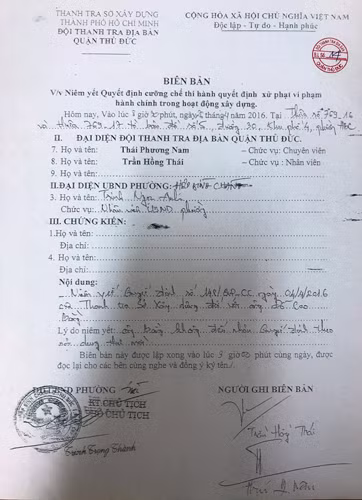 THANH TRA SỞ XÂY DỰNG
THÀNH PHỐ HỒ CHÍ MINH
ĐỘI THANH TRA ĐỊA BÀN
QUẬN THỦ ĐỨC
CỘNG HÒA XÃ HỘI CHỦ NGHĨA VIỆT NAM
Độc lập - Tự do - Hạnh phúc
BIÊN BẢN
V/v Niêm yết Quyết định cưỡng chế thi hành quyết định xử phạt vi phạm
hành chính trong hoạt động xây dựng.
Hôm nay, Vào lúc giờ phút, ngày tháng 4 năm 2016. Tại Thửa số 769.16
và thửa 769.17 tờ bản đồ số 5, đường 20, Khu phố 4, phường
II. ĐẠI DIỆN ĐỘI THANH TRA ĐỊA BÀN QUẬN THỦ ĐỨC.
7. Họ và tên: Thái Phương Nam – Chức vụ: Chuyên viên
8. Họ và tên: Trần Hồng Thái – Chức vụ : Nhân viên
9. Họ và tên:
II.ĐẠI DIỆN UBND PHƯỜNG: HIỆP BÌNH CHÁNH
3. Họ và tên: Trịnh Ngọc Anh
Chức vụ: Nhân viên UBND phường
III. CHỨNG KIẾN:
1.Họ và tên:
Địa chỉ:
4. Họ và tên:
Địa chỉ:
Nội dung:
Niêm yết Quyết định số ngày 04/4/2016
của Thanh tra Sở Xây dựng đối với ông Cao
Lý do niêm yết: ông không Quyết định theo
nội dung
Biên bản này được lập xong vào lúc giờ phút cùng ngày, được
đọc lại cho các bên cùng nghe và đồng ý ký tên./.
ĐẠI DIỆN UBND PHƯỜNG
KT CHỦ TỊCH
PHÓ CHỦ TỊCH
Trịnh Trọng Thành
NGƯỜI GHI BIÊN BẢN
Trần Hồng Thái